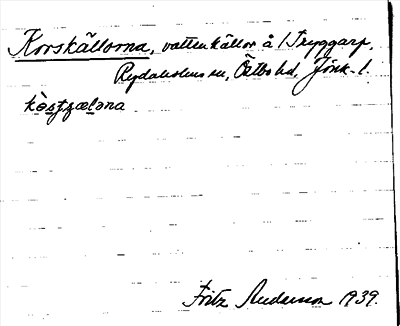 Korskällorna, vattenkällor å 1 Tryggarp,
Rydaholms sn, Östbo hd, Jönk. l.
kòsʃʃælɔna
Fritz Andersson 1939.